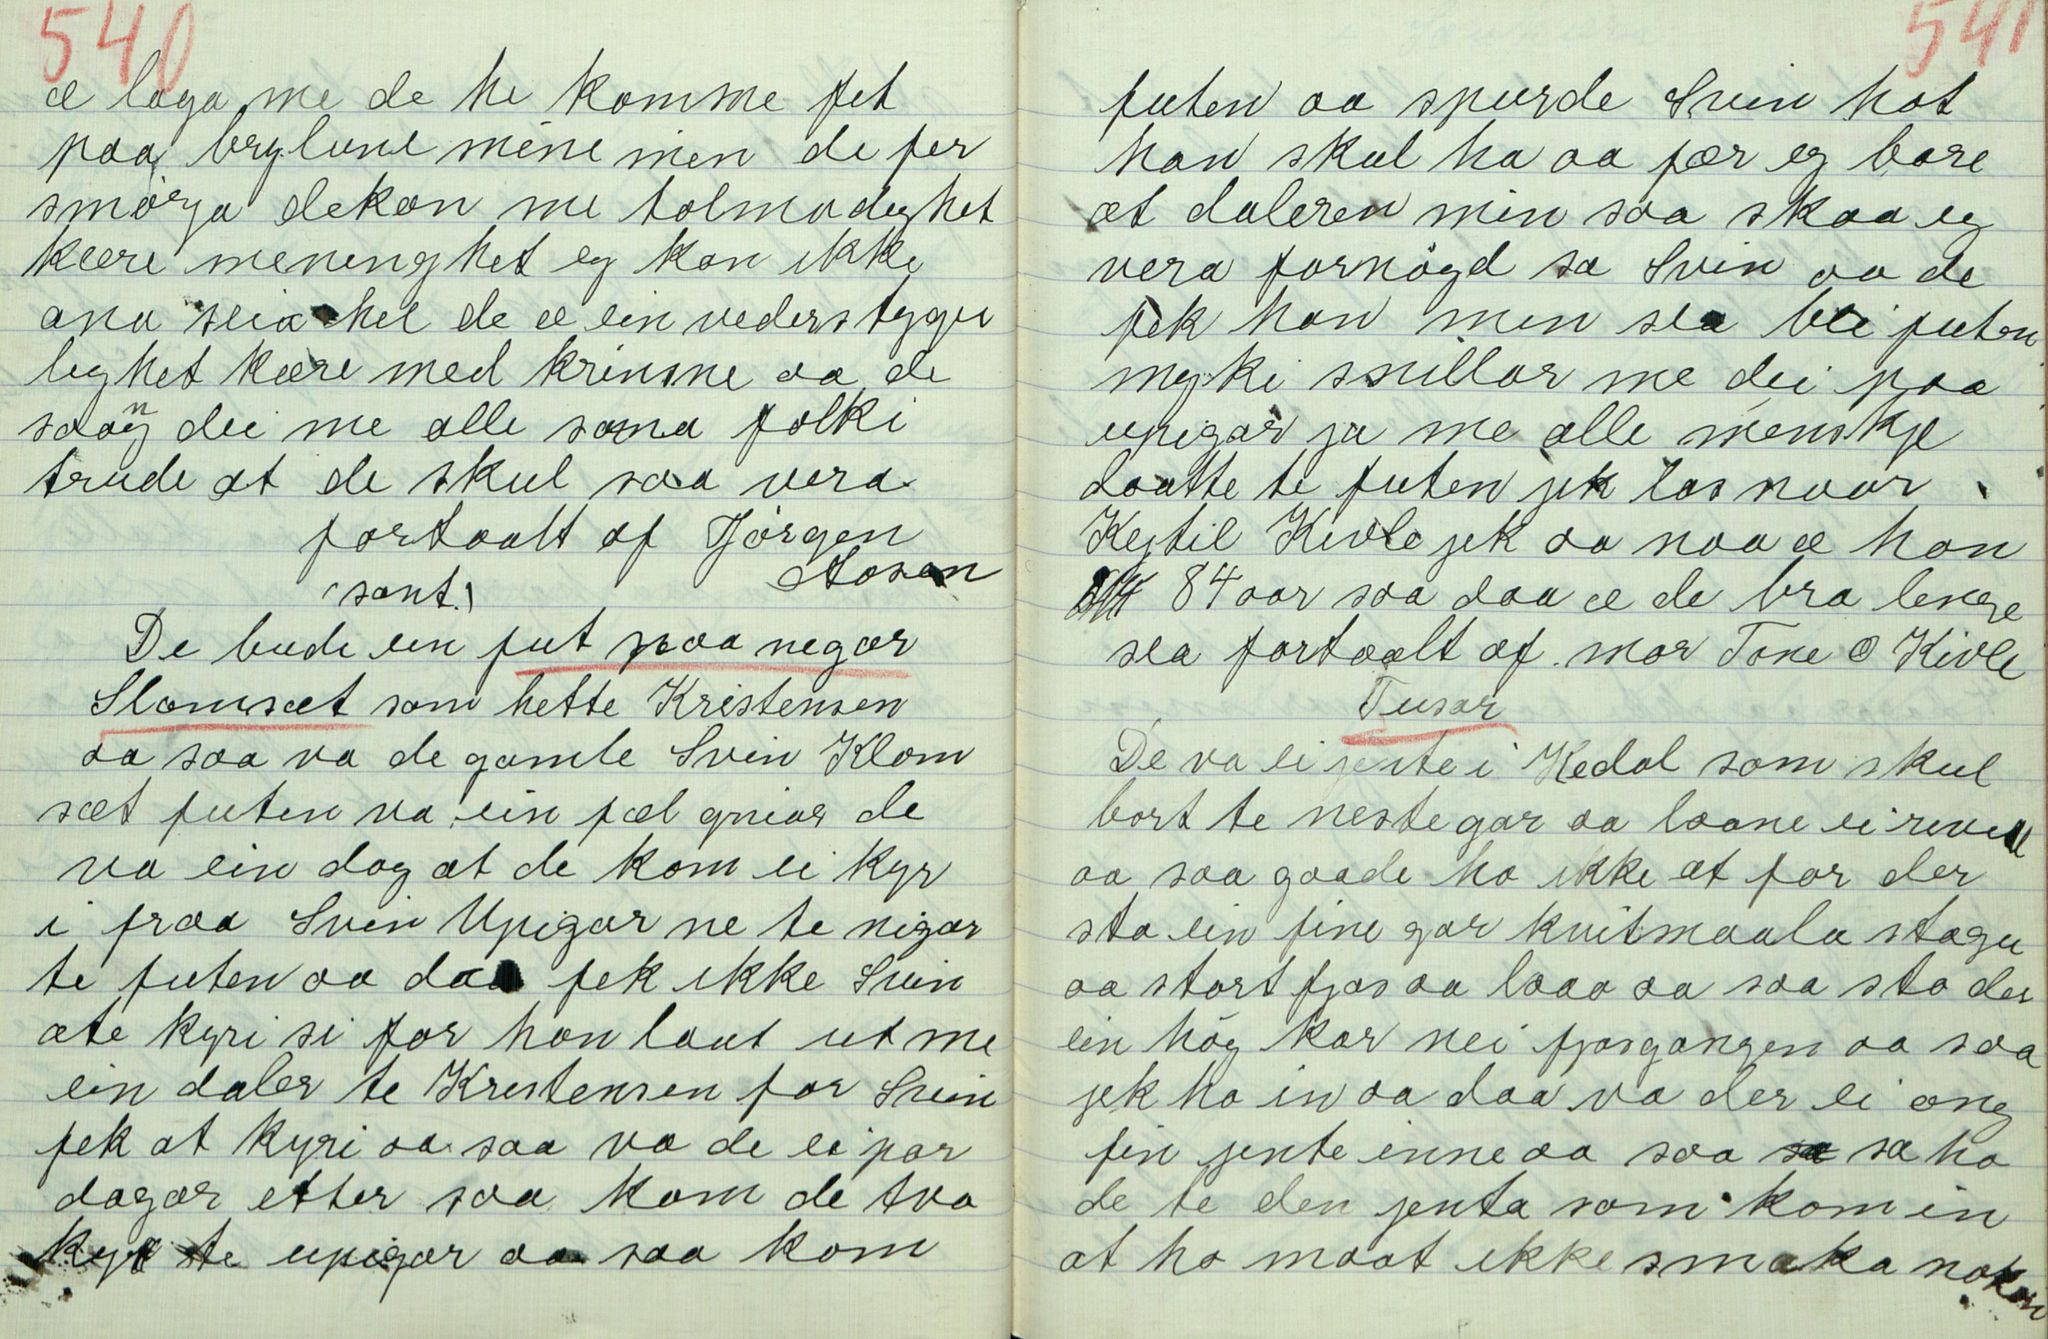 540
æ laga me de he komme fet
paa brylune mine men de fer
smørja dekan me tolmodeghet
kære menenghet eg kan ikke
ana seia hel de æ ein vederstyggu
leghet kære med krinsne aa de
saang dei me alle sama folki
trude at de skul saa vera
fortaalt af Jørgen
Aosen
(sant.)
De bude ein fut paa negar
Slomsæt som hette Kristensen
aa saa va de gamle Svein Klom
sæt futen va ein fæl gniar de
va ein dag at de kom ei kyr
i fraa Svein Upigar ne te nigar
te futen aa daa fek ikke Svein
ate kyri si før han laut ut me
ein daler te Kristensen for Svein
fek at kyri aa saa va de ei par
dagar etter saa kom de tvo
kyr te upigar aa saa kom
541
futen aa spurde Svein hot
han skul ha aa fær eg bare
at daleren min saa skaa eg
vera fornøgd sa Svein aa de
fek han men sea blei futen
myki snillar me dei paa
upigar ja me alle menskje
daatte te futen jek las naar
Kjetil Kivle jek aa naa æ han
84 aar saa daa æ de bra lenge
sea fortaalt af mor Tone O Kivle
Tusar
De va ei jente i Hedal som skul
bort te nestegar aa laane ei reive
aa saa gaade ho ikke at før der
sto ein fine gar kvitmaala stogu
aa stort fjos aa laao aa saa sto der
ein høg kar nei fjosgangen aa saa
jek ho in aa daa va der ei ong
fin jente inne aa saa sa ho
de te den jenta som kom in
at ho maat ikke smaka noken